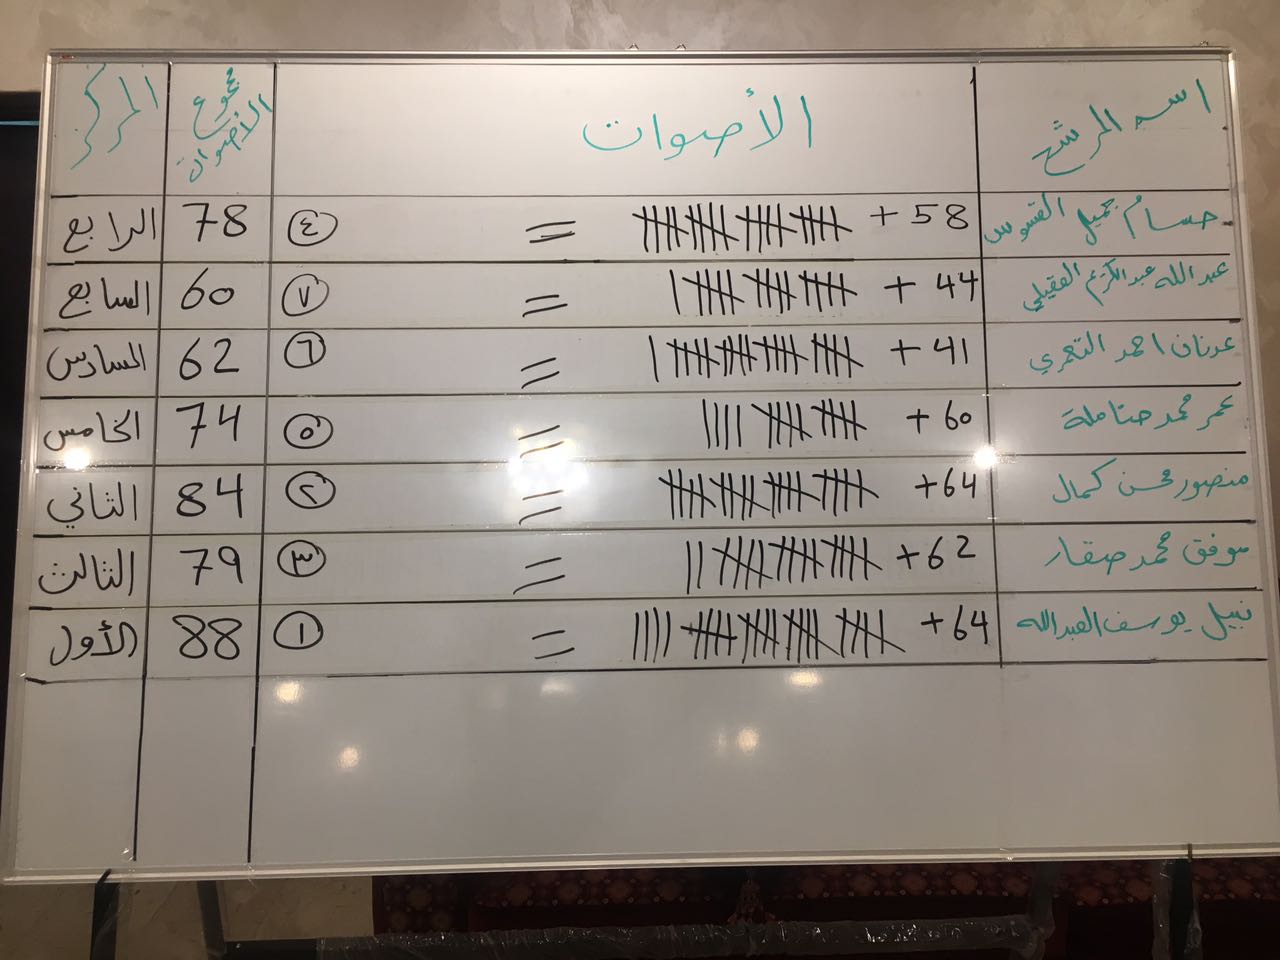 اسم المرشح الأصوات مجموع الأصوات المركز
حسام جميل القسوس 58 + = ٤ 78 الرابع
عبدالله عبدالكريم العقيلي 44 + = ٧ 60 السابع
عدنان احمد التعمري 41 + = ٦ 62 السادس
عمر محمد حتاملة 60 + = ٥ 74 الخامس
منصور محسن كمال 64 + = ٢ 84 الثاني
موفق محمد صقار 62 + = ٣ 79 الثالث
نبيل يوسف العبدالله 64 + = ١ 88 الأول